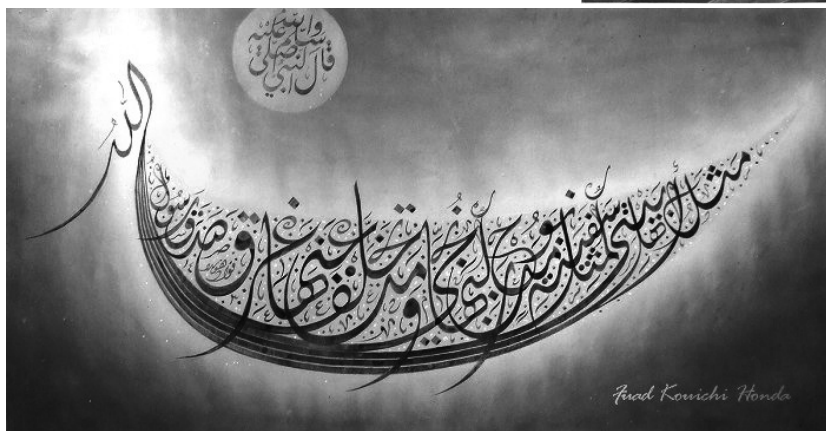 قال النبي صلى الله عليه وآله وسلم
مثل أهل بيتي كمثل سفينة نوح من ركبها نجى ومن تخلف عنها غرق صدق رسول الله
Fuad Kouichi Honda